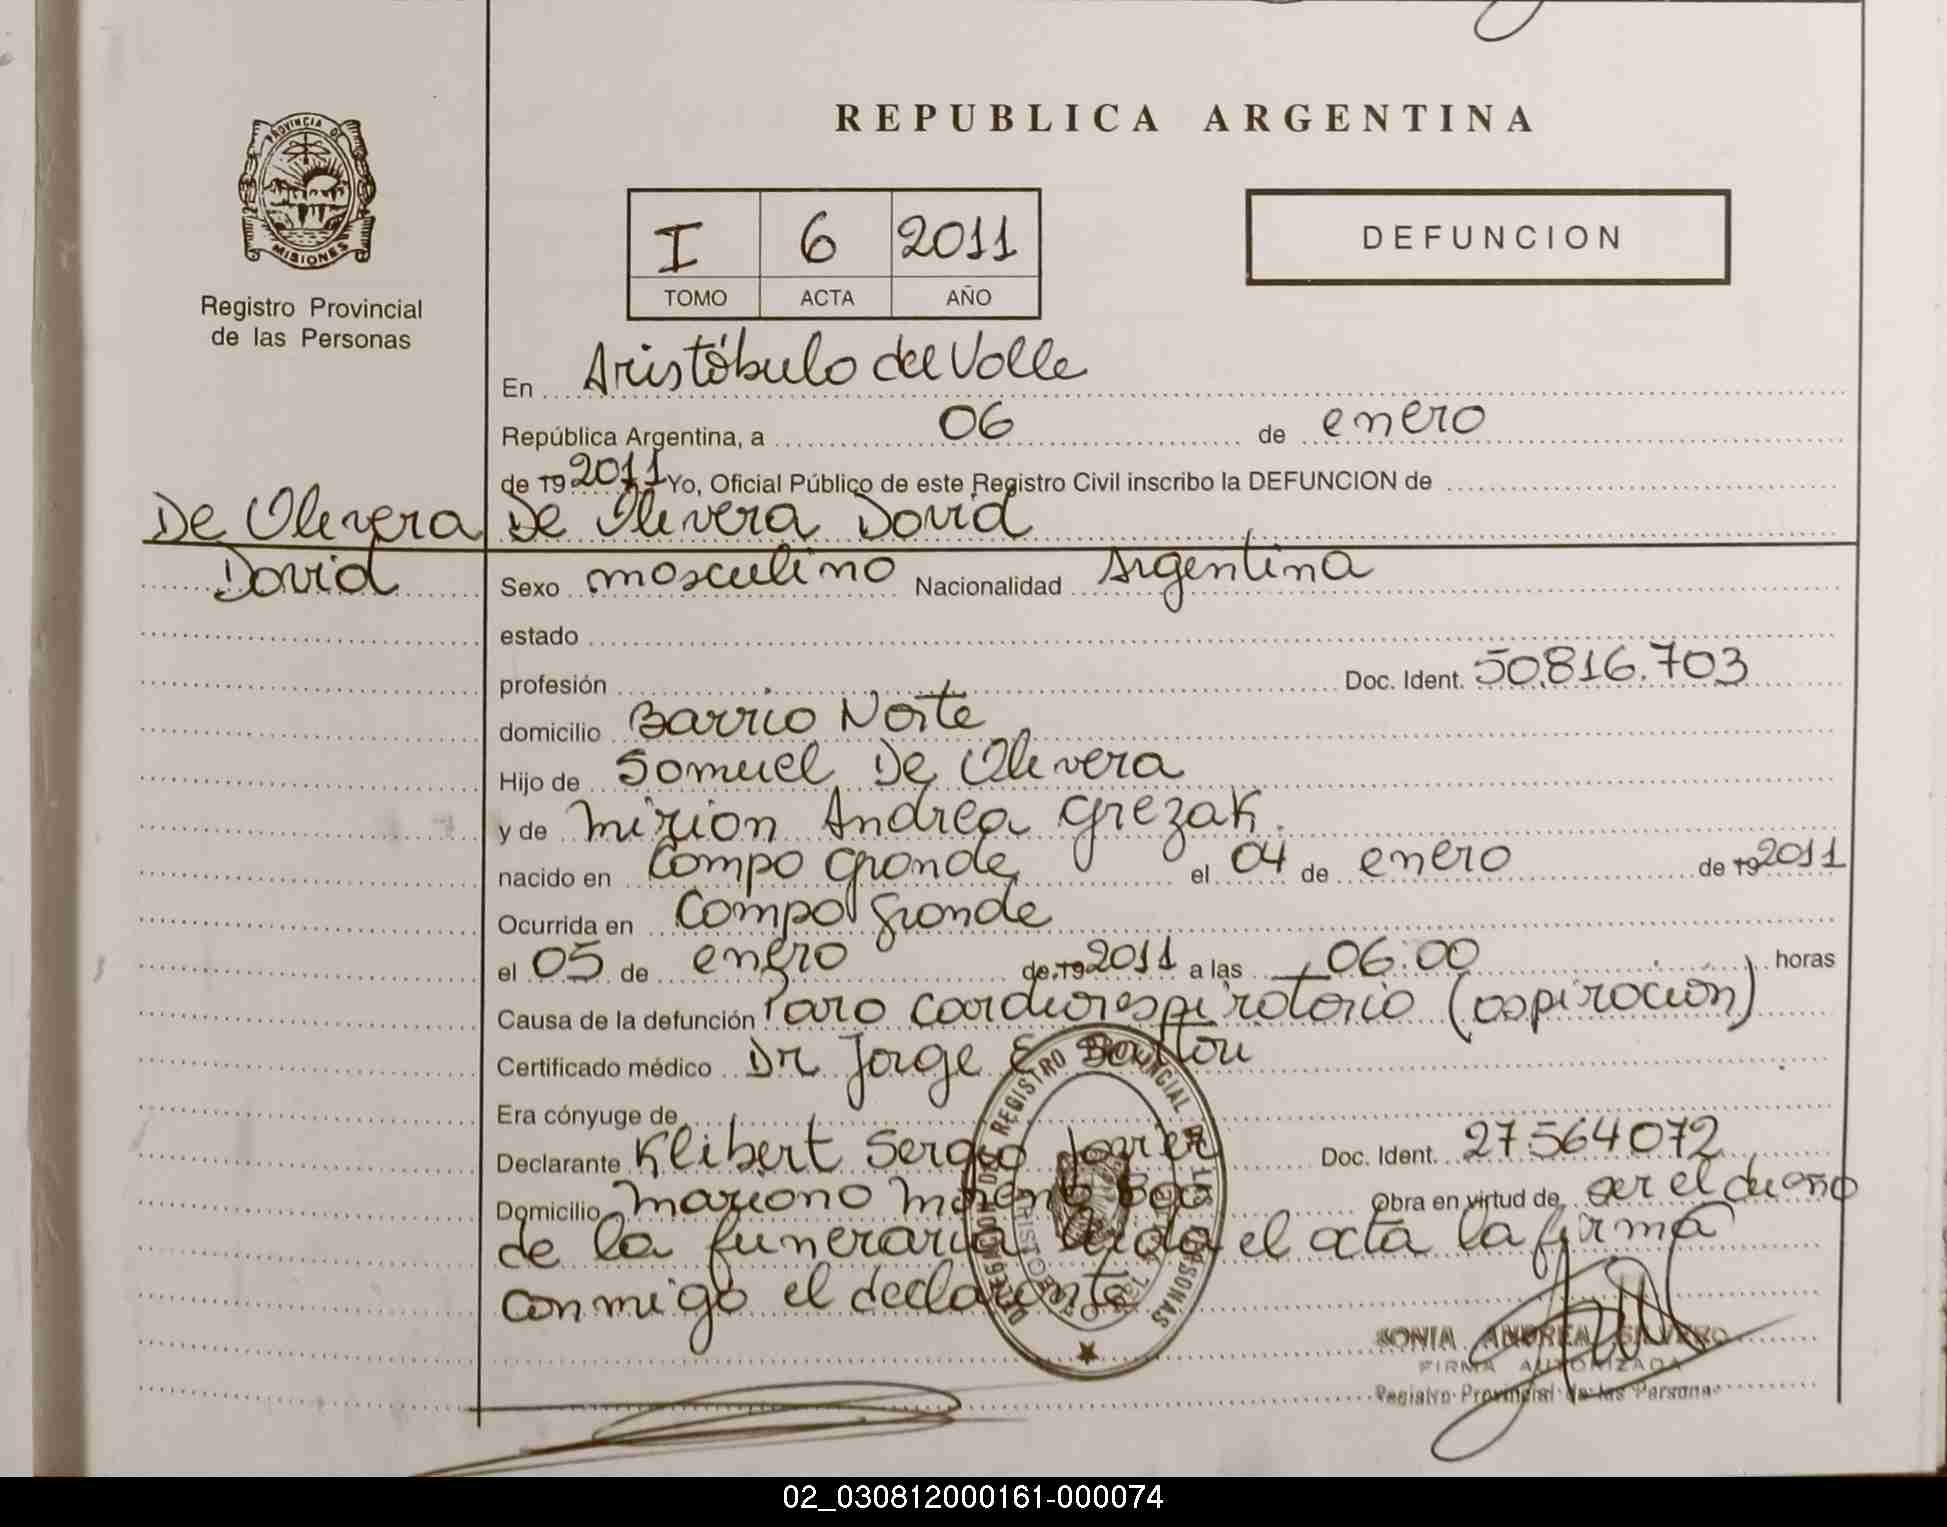 REPUBLICA ARGENTINA
PROVINCIA DE
MISIONES
Registro Provincial
de las Personas
I 6 2011
TOMO ACTA AÑO
DEFUNCION
En Aristóbulo del Valle
República Argentina, a 06 de enero
de 19 2011 Yo, Oficial Público de este Registro Civil inscribo la DEFUNCION de
De Olivera De Olivera David
David Sexo masculino Nacionalidad Argentina
estado
profesión Doc. Ident. 50.816.703
domicilio Barrio Norte
Hijo de Samuel De Olivera
y de Mirian Andrea Grezak.
nacido en Campo Grande el 04 de enero de 19 2011
Ocurrida en Campo Grande
el 05 de enero de 19 2011 a las 06:00 horas
Causa de la defunción Paro cardiorespiratorio (aspiración)
Certificado médico Dr Jorge E
Era cónyuge de
Declarante Klibert Sergio Javier Doc. Ident. 27564072
Domicilio Mariano Moreno Obra en virtud de ser el dueño
de la funeraria leida el acta la firma
conmigo el declarante
REGISTRO PROVINCIAL DE LAS PERSONAS
SONIA ANDREA SILVERO
FIRMA AUTORIZADA
Registro Provincial de las Personas
02_030812000161-000074